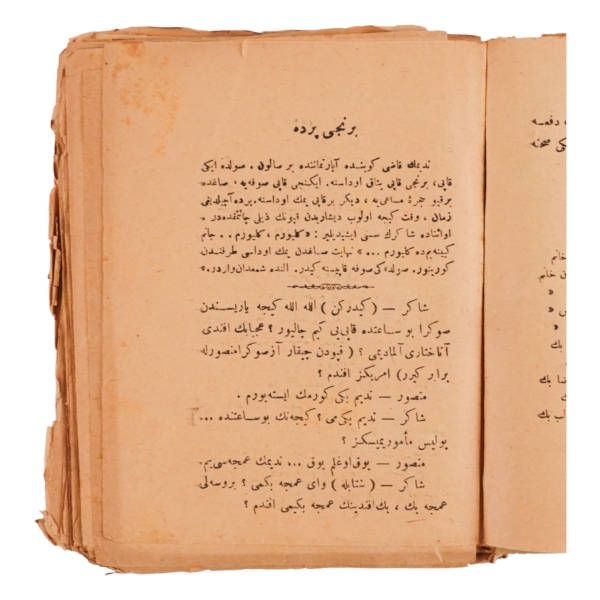 برنجی پرده
ندیمك قاضی كوینده آپارتماننده بر صالون . صولده ایكی
قاپی، برنجی قاپی یتاق اوداسنه. ایكنجی قاپی صوفه‌یه ، صاغده
برقپو حجرهٔ مساعی‌یه ، دیكر برقاپی یمك اوداسنه. پرده آچیلدیغی
زمان ، وقت كیجه اولوب دیشاریدن قپونك ذیلی چالنمقده‌در .
اواثناده شاكرك سسی ایشیدیلیر : «كلیورم ، كلیورم . . جانم
كیینه‌یم‌ده كلیورم ... » نهایت صاغدن یمك اوداسی طرفندن
كورینور. صولده‌كی صوفه قاپیسنه كیدر. النده شمعدان واردر.»
شاكر — ( كیدركن ) الله الله كیجه یاریسندن
صوكرا بو ساعتده قاپی‌یی كیم چالیور ؟ عجبابك افندی
آناختاری آلمادیمی ؟ ( قپودن چیقار آزصوكرا منصورله
برابر كیرر) امریكز افندم ؟
منصور — ندیم بكی كورمك ایسته‌یورم .
شاكر — ندیم بكی‌می ؟ كیجه‌نك بوساعتنده ...
پولیس مأموریمیسكز ؟
منصور — یوق اوغلم یوق ... ندیمك عمجه‌سی‌یم.
شاكر — ( شتابله ) وای عمجه بكمی ؟ بروسه‌لی
عمجه بك ، بك‌افندینك عمجه بكیمی افندم ؟
دفعه
صحنه
خانم
خانم
»
»
»
بك
بك
بك